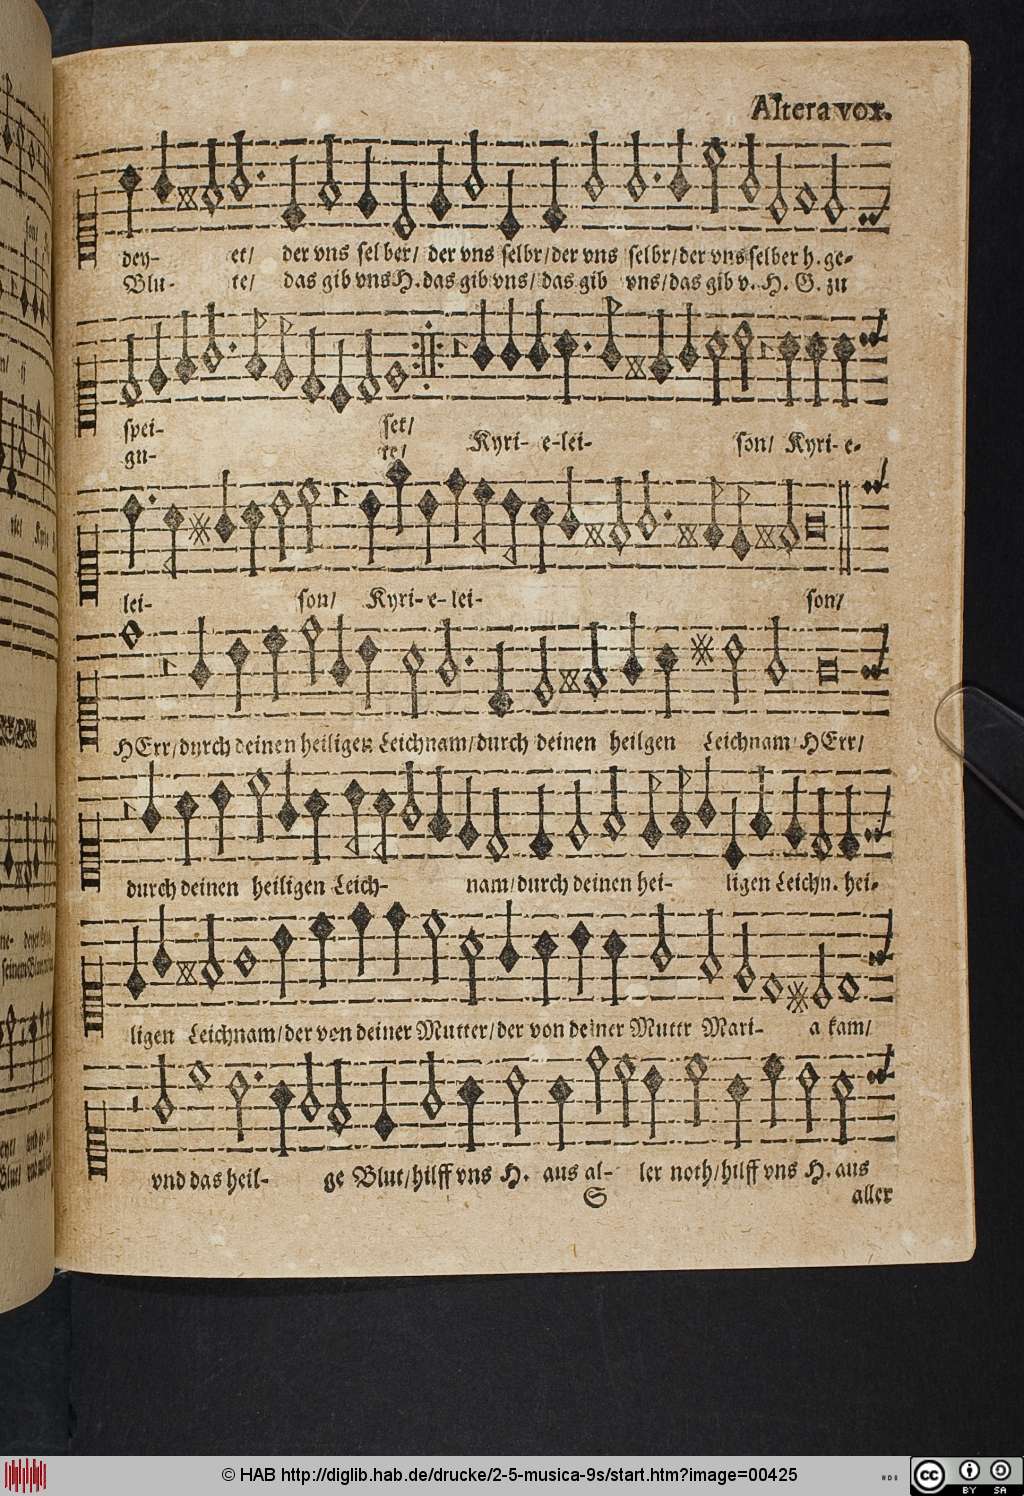 Altera vox.
dey- et/ der vns selber/ der vns selbr/ der vns selbr/ der vns selber h. ge-
Blu- te/ das gib vns H. das gib vns/ das gib vns/ das gib v. H. G. zu
spei- set/ Kyri- e-lei- son/ Kyri- e-
gu- te/
lei- son/ Kyri- e- lei- son/
HErr/ durch deinen heiligen Leichnam/ durch deinen heilgen Leichnam HErr/
durch deinen heiligen Leich- nam/ durch deinen hei- ligen Leichn. hei-
ligen Leichnam/ der von deiner Mutter/ der von deiner Muttr Mari- a kam/
vnd das heil- ge Blut/ hilff vns H. aus al- ler noth/ hilff vns H. aus
S aller
© HAB http://diglib.hab.de/drucke/2-5-musica-9s/start.htm?image=00425
cc BY SA